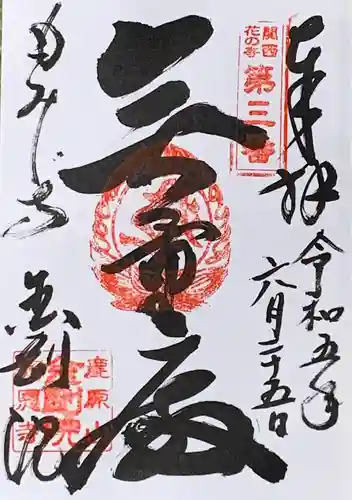 奉拝
令和五年
六月二十五日
関西
花の寺
第三番
無量殿
もみじ寺
金剛院
鹿原山
金剛院